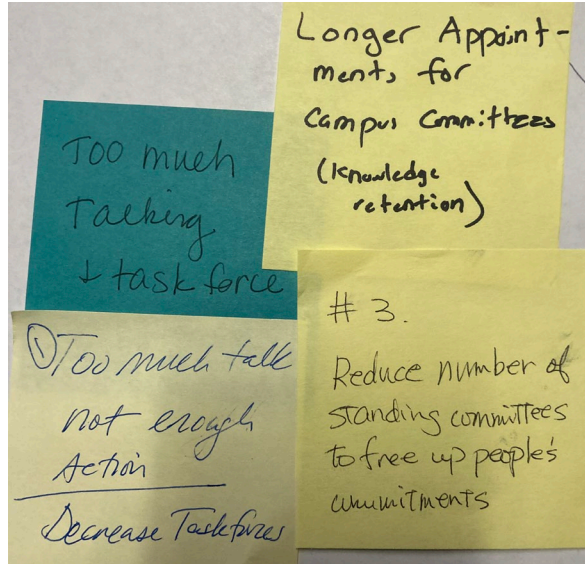 Longer Appoint-
ments for
Campus Committees
(knowledge
retention)
Too much
Talking
+ task force
① Too much talk
not enough
Action
Decrease Taskforces
# 3.
Reduce number of
standing committees
to free up people's
commitments